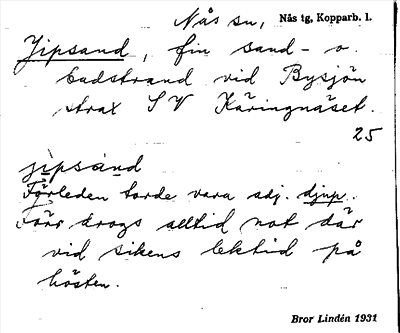 Nås sn, Nås tg, Kopparb. l.
Jipsand, fin sand- o.
badstrand vid Bysjön
strax SV Käringnäset.
25
jipsand
Förleden torde vara adj. djup.
Förr drogs alltid not där
vid sikens lektid på
hösten.
Bror Lindén 1931